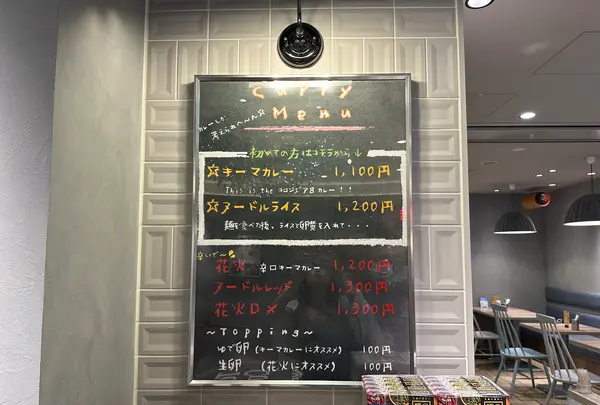 Curry
Menu
カレーしか
考えられ〜〜ん☆
初めての方はコチラから↓
☆キーマカレー 1,100円
This is the コロンビア8カレー!!
☆ヌードルライス 1,200円
麺を食べた後、ライスと卵黄を入れて・・・
辛いで〜
花火 辛口キーマカレー 1,200円
ヌードルレッド 1,300円
花火口メ 1,300円
〜Topping〜
ゆで卵 (キーマカレーにオススメ) 100円
生卵 (花火にオススメ) 100円